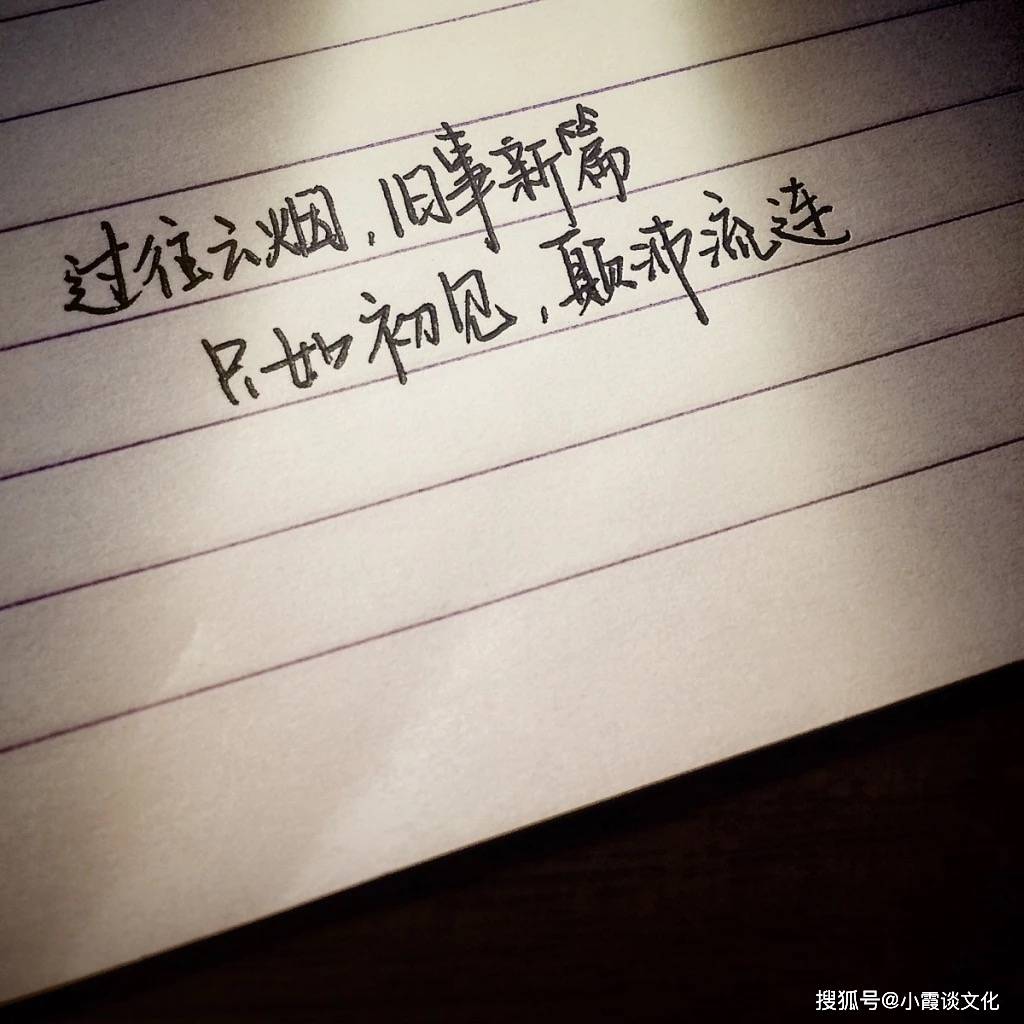 过往云烟，旧事新篇
只如初见，颠沛流连
搜狐号@小霞谈文化